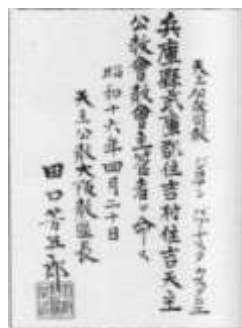 天主公教司祭
兵庫縣武庫郡住吉村住吉天主
公教會教會主管者ヲ命ス
昭和十六年四月二十日
天主公教大阪教區長
田口芳五郎